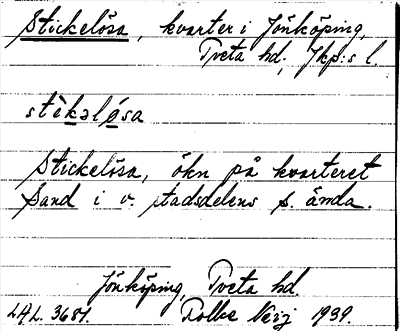 Stickelösa, kvarter i Jönköping,
Tveta hd, Jkp:s l.
stìkəlǿsa
Stickelösa, ökn på kvarteret
Sand i v. stadsdelens s. ända.
Jönköping, Tveta hd.
LAL. 3681. 1939.